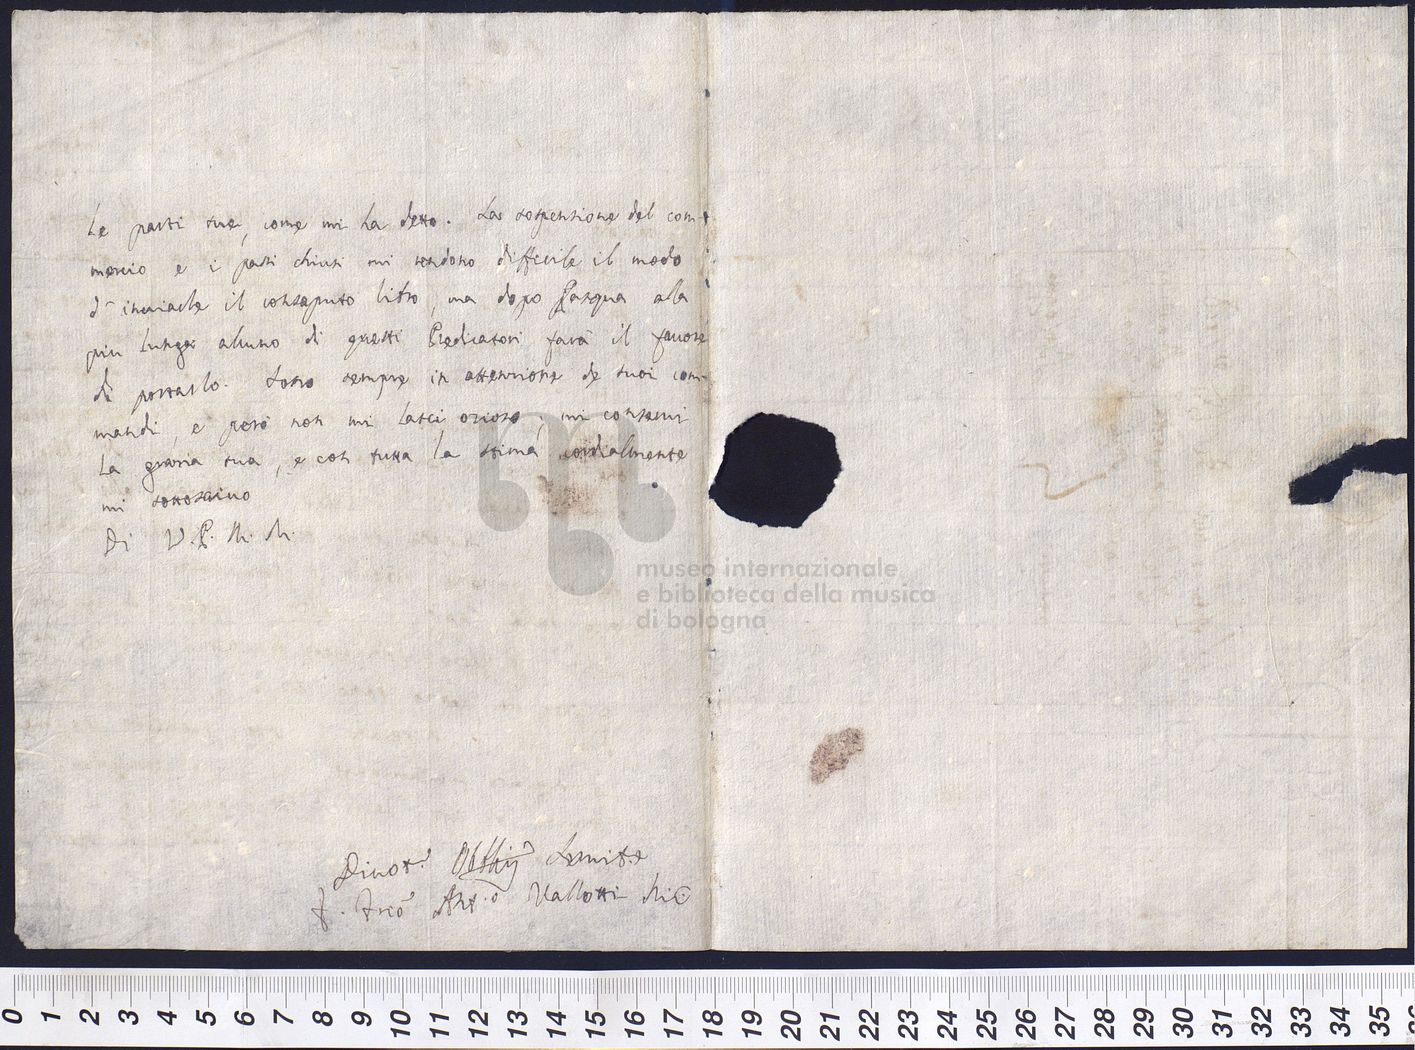 le parti sue, come mi ha detto. La sospensione del com-
mercio e i passi chiusi mi rendono difficile il modo
d'inviarle il consaputo libro, ma dopo Pasqua alla
più lunga alcuno di questi Predicatori farà il favore
di portarlo. Sono sempre in attenzione de suoi com-
mandi, e però non mi lasci ozioso, mi conservi
la grazia sua, e con tutta la stima cordialmente
mi sottoscrivo
Di V. P. M. R.
museo internazionale
e biblioteca della musica
di bologna
Divot.º Servit.e
F. Fran.co Ant.º Vallotti
0 1 2 3 4 5 6 7 8 9 10 11 12 13 14 15 16 17 18 19 20 21 22 23 24 25 26 27 28 29 30 31 32 33 34 35